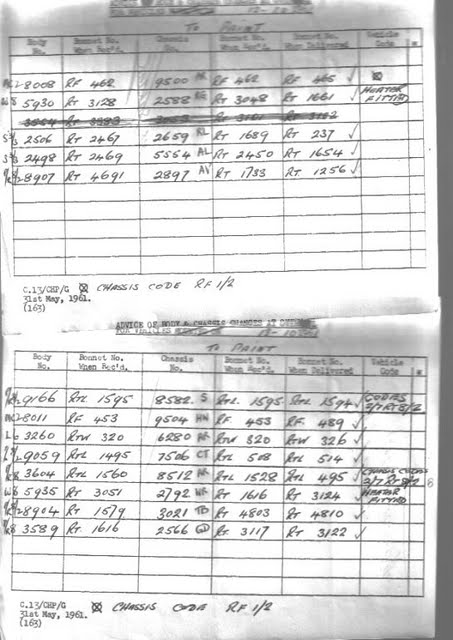 BODY & CHASSIS CHANGES AT
TO PAINT
Body No. Bonnet No. When Rec'd. Chassis No. Bonnet No. When Rec'd. Bonnet No. When Delivered Vehicle Code *
8008 RF 462 9500 RF 462 RF 465 ✓
5930 RT 3128 2588 RT 3048 RT 1661 ✓ HEATER FITTED
2506 RT 2467 2659 RL RT 1689 RT 237 ✓
2498 RT 2469 5554 AL RT 2450 RT 1654 ✓
8907 RT 4691 2897 AV RT 1733 RT 1256 ✓
C.13/CHP/G CHASSIS CODE RF 1/2
31st May, 1961.
(163)
ADVICE OF BODY & CHASSIS CHANGES AT
FOR VEHICLES
TO PAINT
Body No. Bonnet No. When Rec'd. Chassis No. Bonnet No. When Rec'd. Bonnet No. When Delivered Vehicle Code *
9166 RTL 1595 8582 S RTL 1595 RTL 1594 ✓ CODES
8011 RF 453 9504 RF 453 RF 489 ✓
L6 3260 RTW 320 6280 RTW 320 RTW 326 ✓
9059 RTL 1495 7506 CT RTL 508 RTL 514 ✓
3604 RTL 1560 8512 RTL 1528 RTL 495 ✓ CHASSIS CODES
5935 RT 3051 2792 RT 1616 RT 3124 ✓ HEATER FITTED
8904 RT 1579 3021 TD RT 4803 RT 4810 ✓
3589 RT 1616 2566 RT 3117 RT 3122 ✓
C.13/CHP/G CHASSIS CODE RF 1/2
31st May, 1961.
(163)